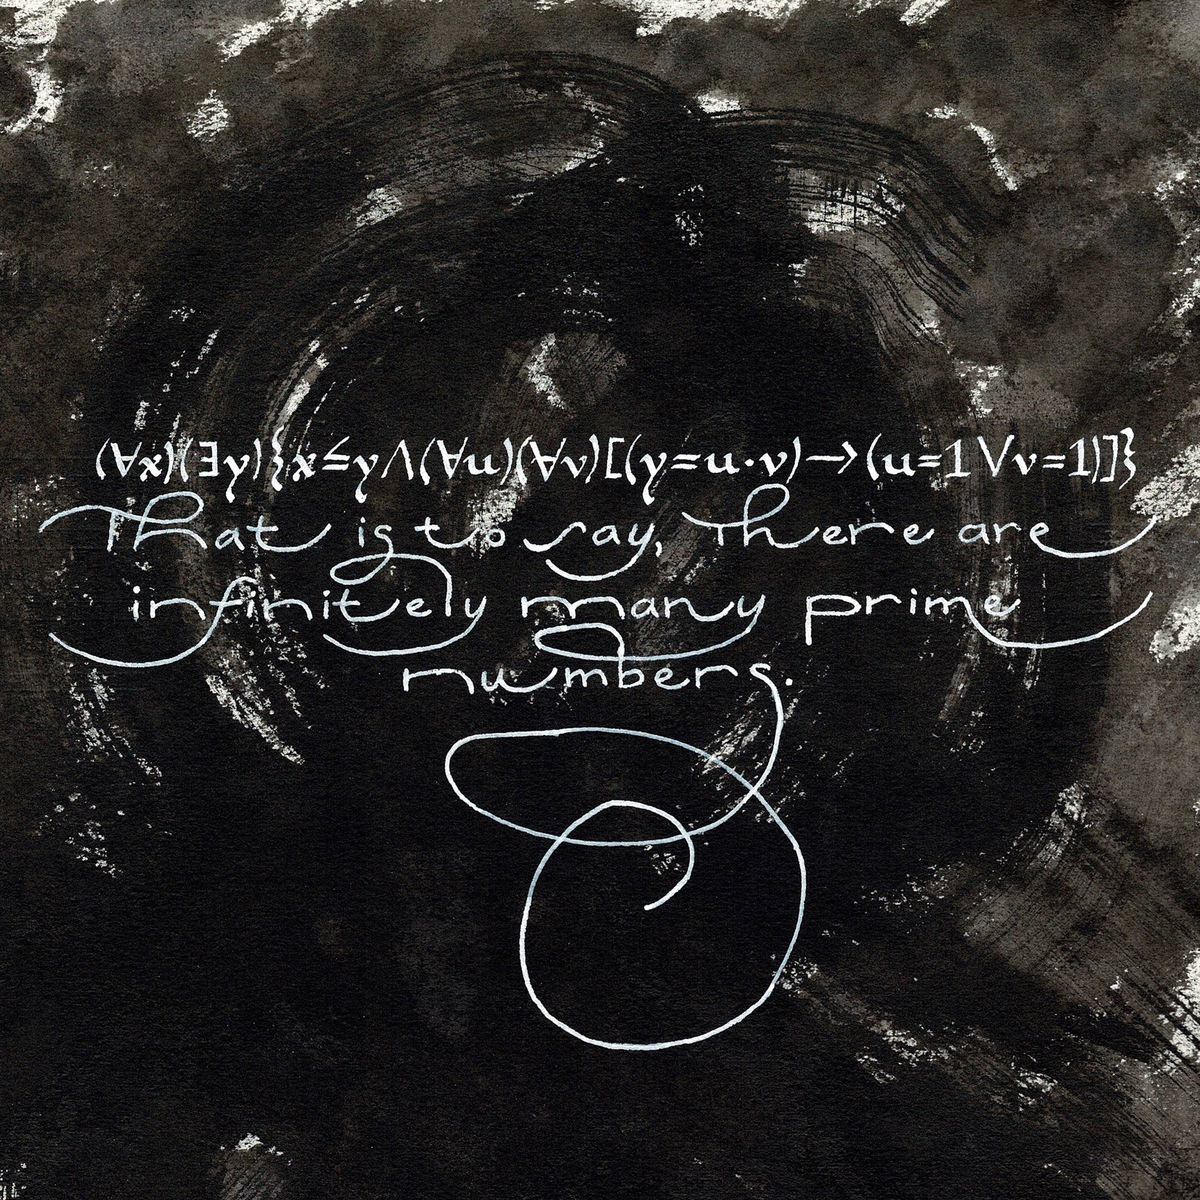 (∀x)(∃y){x≤y⋀(∀u)(∀v)[(y=u·v)→(u=1⋁v=1)]}
That is to say, There are
infinitely many prime
numbers.